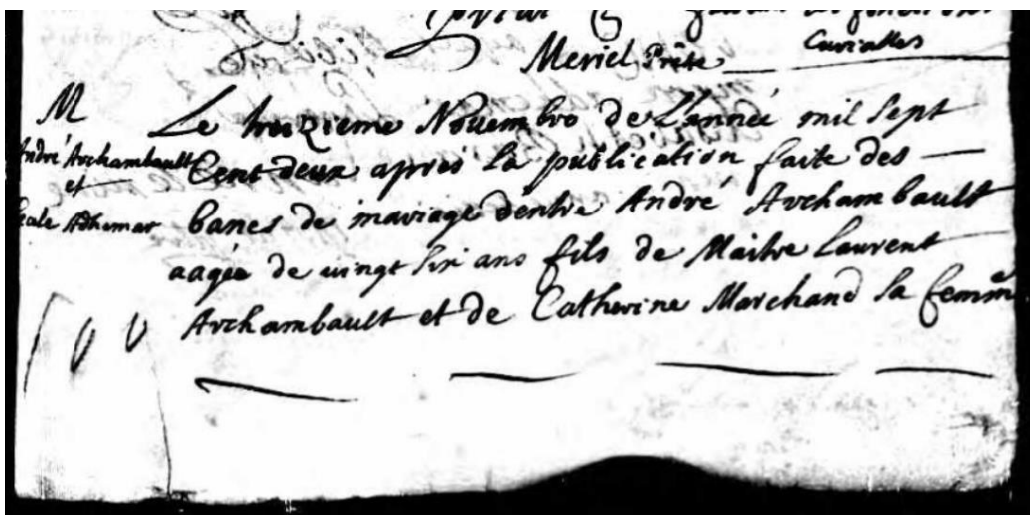 faisant les fonctions
Curialles
Meriel Prêtre
M
André Archambault
et
Cecile Adhemar
Le treizieme Novembre de L'année mil Sept
Cent deux aprés la publication faite des
bancs de mariage dentre André Archambault
aagée de vingt six ans fils de Maitre Laurent
Archambault et de Catherine Marchand sa femme